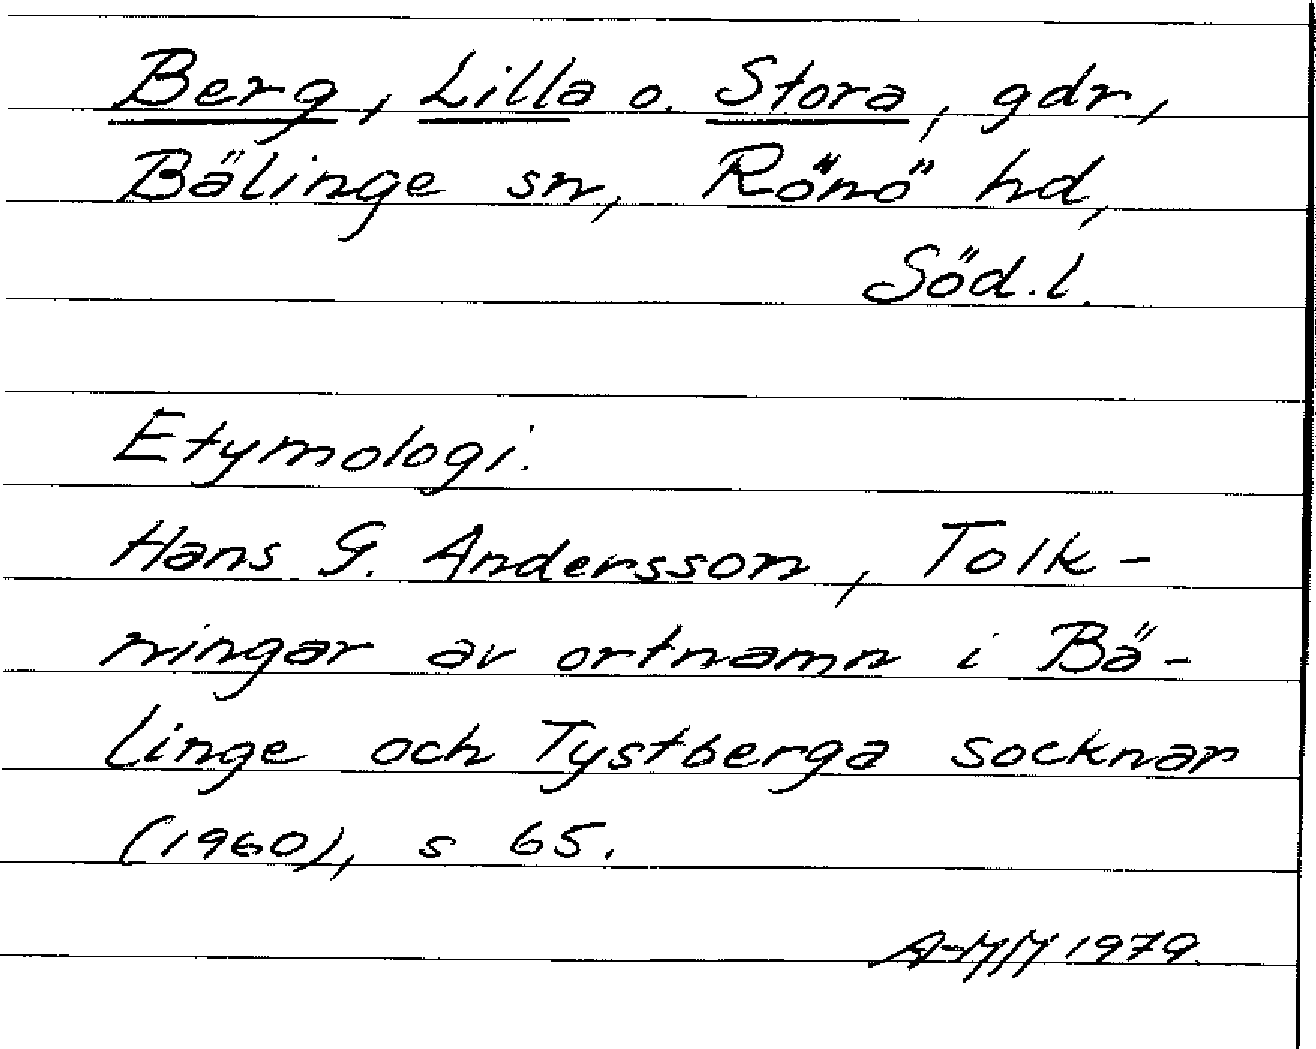 Berg, Lilla o. Stora, gdr,
Bälinge sn, Rönö hd,
Söd.l.
Etymologi.
Hans G. Andersson, Tolk-
ningar av ortnamn i Bä-
linge och Tystberga socknar
(1960), s 65.
A-MM 1979.